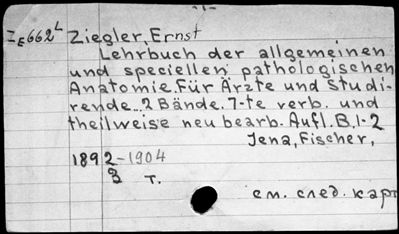 -1-
IE662L Ziegler, Ernst
Lehrbuch der allgemeinen
und speciellen pathologischen
Anatomie. Für Ärzte und Studi-
rende... 2 Bände. 7-te verb. und
theilweise neu bearb. Aufl. B. 1-2
Jena, Fischer,
1892-1904
т.
см. след. карт